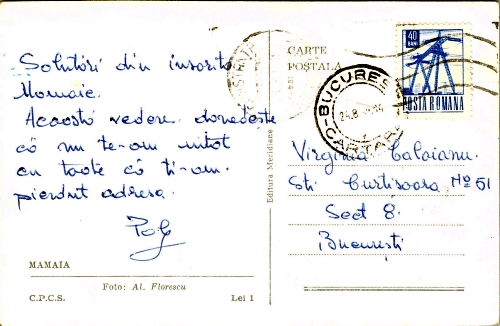 Salutări din însorita
Mamaie.
Această vedere dovedește
că nu te-am uitat
cu toate că ți-am
pierdut adresa.
MAMAIA
Foto: Al. Florescu
C.P.C.S.
Lei 1
Editura Meridiane
CARTE
POȘTALĂ
40
BANI
POSTA ROMANA
BUCURE
CARTARE
Virginia Caloianu
Str. Curtișoara No 51
Sect 8.
București